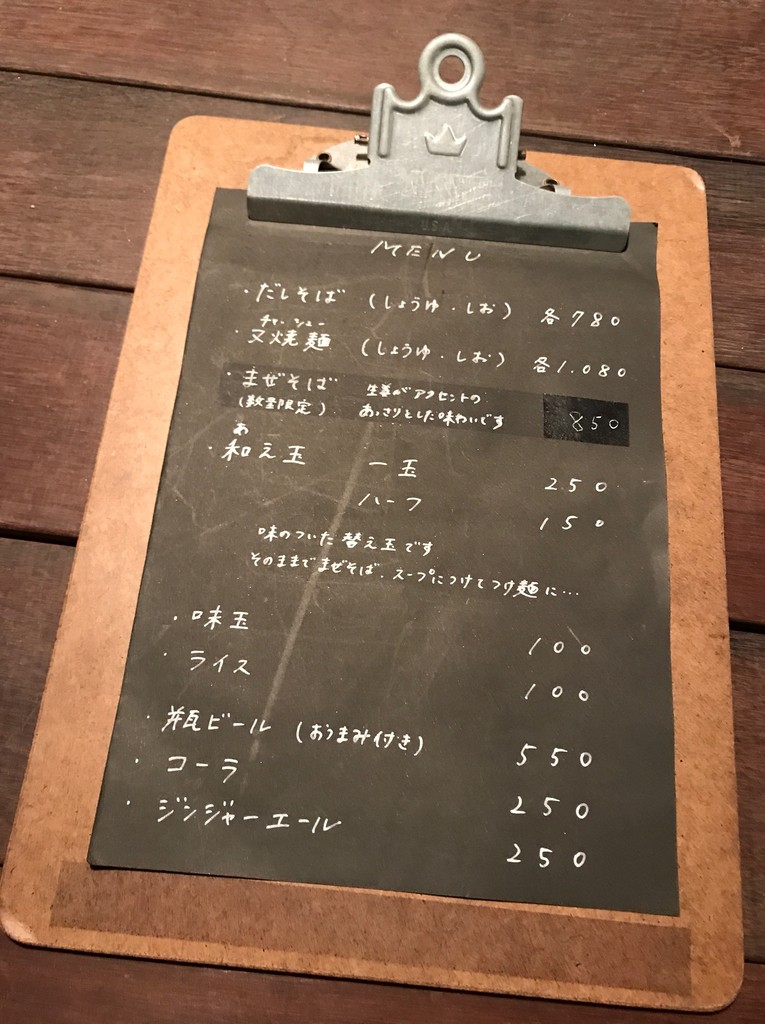 MENU
・だしそば (しょうゆ・しお) 各780
チャーシュー
・叉焼麺 (しょうゆ・しお) 各1.080
・まぜそば 生姜がアクセントの
(数量限定) あっさりとした味わいです 850
あ
・和え玉 一玉 250
ハーフ 150
味のついた替え玉です
そのままでまぜそば、スープにつけてつけ麺に…
・味玉 100
・ライス 100
・瓶ビール (おつまみ付き) 550
・コーラ 250
・ジンジャーエール 250